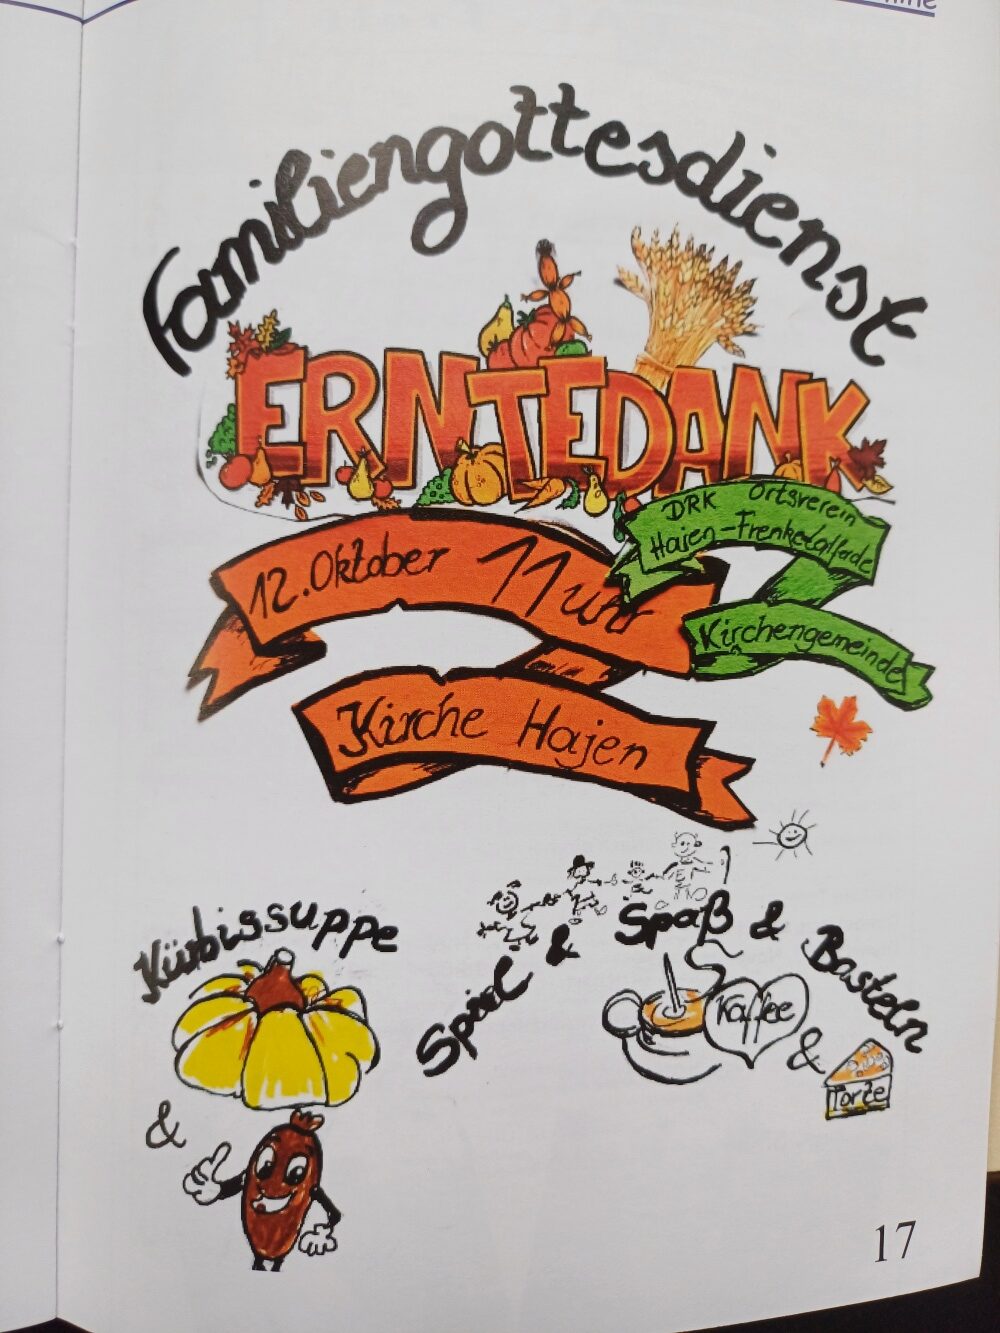 Familiengottesdienst
ERNTEDANK
DRK Ortsverein
Hajen-Frenke
Kirchengemeinde
12. Oktober 11 uhr
Kirche Hajen
Kürbissuppe
&
Spiel & Spaß & Basteln
Kaffee
&
Torte
17